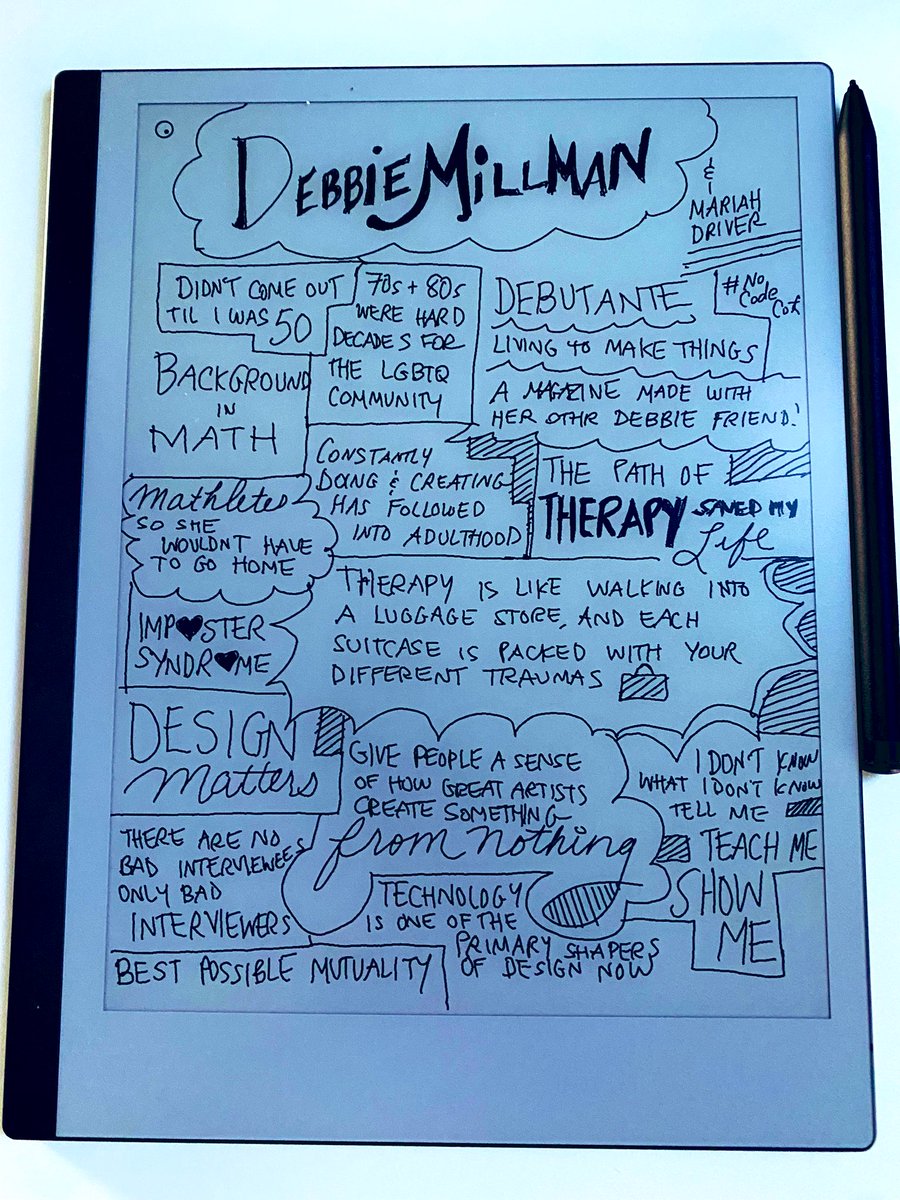 DEBBIE MILLMAN
& MARIAH
DRIVER
DIDN'T COME OUT
TIL I WAS 50
70s + 80s
WERE HARD
DECADES FOR
THE LGBTQ
COMMUNITY
DEBUTANTE
#No
Code
LIVING TO MAKE THINGS
A MAGAZINE MADE WITH
HER OTHR DEBBIE FRIEND!
BACKGROUND
IN
MATH
CONSTANTLY
DOING & CREATING
HAS FOLLOWED
INTO ADULTHOOD
THE PATH OF
THERAPY SAVED MY
Life
mathletes
SO SHE
WOULDNT HAVE
TO GO HOME
THERAPY IS LIKE WALKING INTO
A LUGGAGE STORE, AND EACH
SUITCASE IS PACKED WITH YOUR
DIFFERENT TRAUMAS
IMP♥STER
SYNDR♥ME
DESIGN
Matters
GIVE PEOPLE A SENSE
OF HOW GREAT ARTISTS
CREATE SOMETHING
from nothing
I DON'T KNOW
WHAT I DON'T KNOW
TELL ME
TEACH ME
SHOW
ME
THERE ARE NO
BAD INTERVIEWEES
ONLY BAD
INTERVIEWERS
TECHNOLOGY
IS ONE OF THE
PRIMARY SHAPERS
OF DESIGN NOW
BEST POSSIBLE MUTUALITY